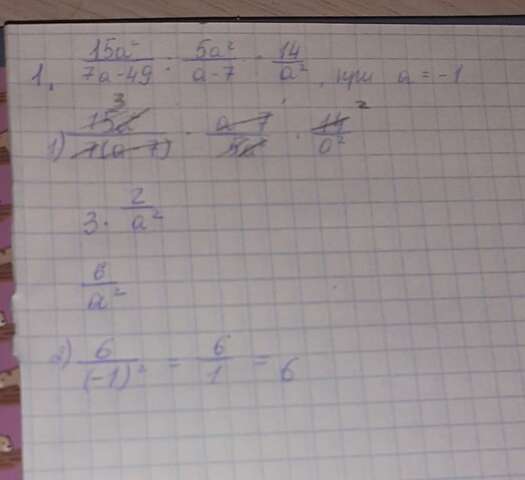 1. 15a²/(7a-49) : 5a²/(a-7) · 14/a², при a = -1
1) 15a²/7(a-7) · (a-7)/5a² · 14/a² 3 2
3 · 2/a²
6/a²
2) 6/(-1)² = 6/1 = 6